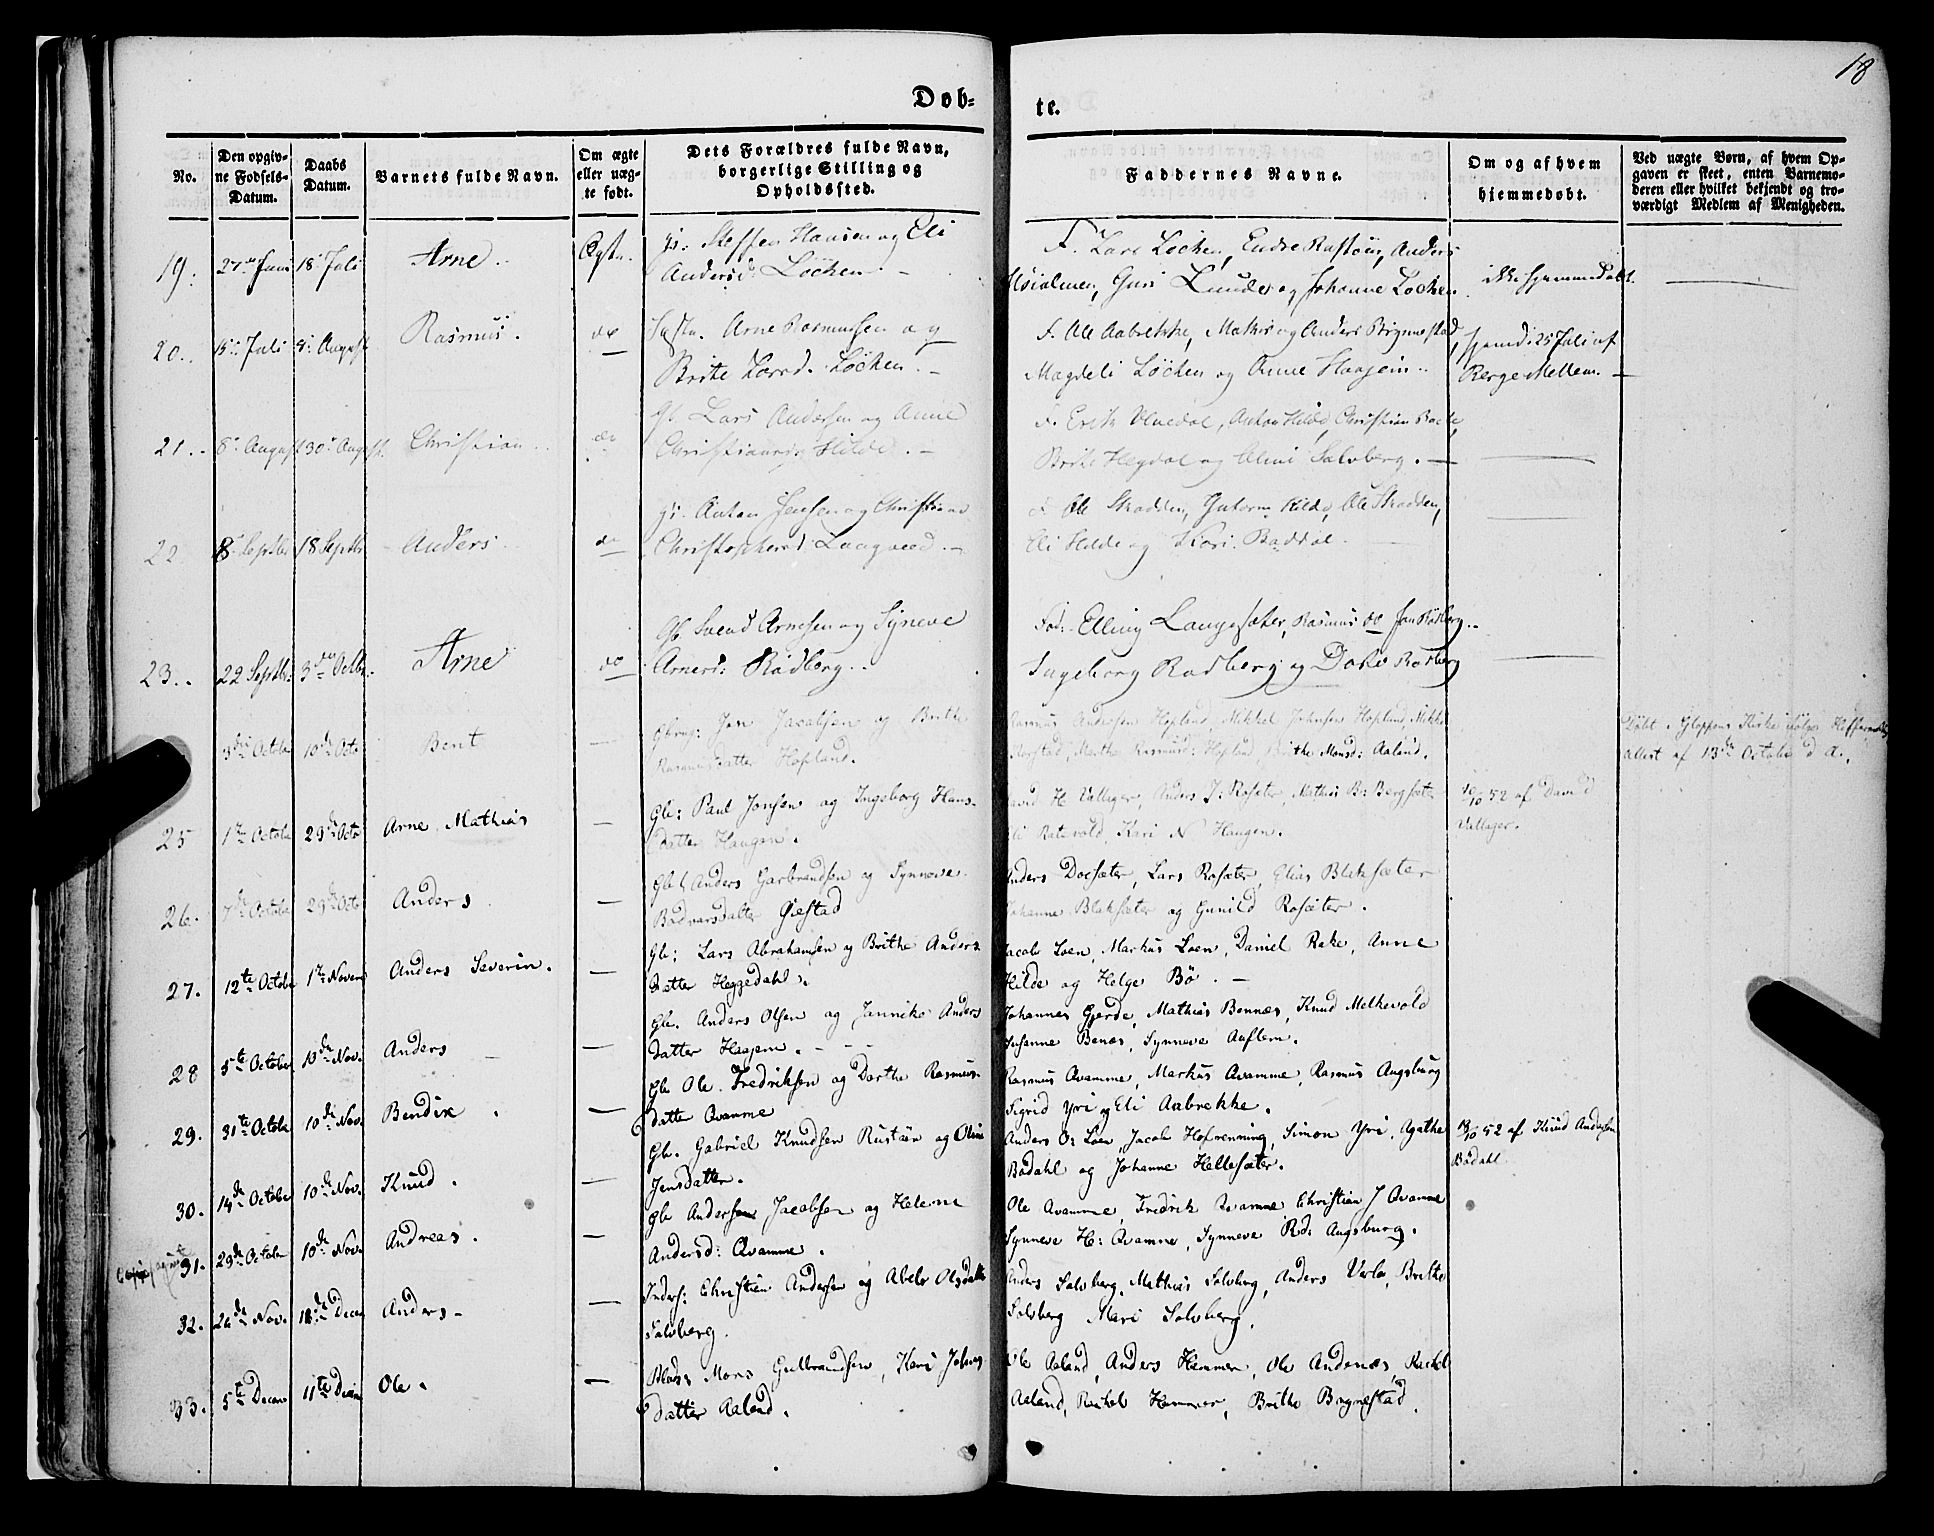 18
Døb-
te.
No.
Den opgiv-
ne Fødsels-
Datum.
Daabs
Datum.
Barnets fulde Navn.
Om ægte
eller uæg-
te født.
Dets Forældres fulde Navn,
borgerlige Stilling og
Opholdssted.
Faddernes Navne.
Om og af hvem
hjemmedøbt.
Ved uægte Børn, af hvem Op-
gaven er skeet, enten Barnemo-
deren eller hvilket bekjendt og tro-
værdigt Medlem af Menigheden.
19. 27 Juni 18 Juli Arne Steffen Hansen og Eli
Andersd: Løchen
F. Lars Løchen, Endre Anders
Guri Lunde og Johanne Løchen ikke hjemmedøbt.
20. 15 Juli 8 August Rasmus. do Arne Rasmussen og
Brite Løchen.
F. Ole Aabrekke, Mathis og Anders Brynnestad,
Magdeli Løchen og Anne Haajem hjemd. 25 Juli af
Berge Mellem.
21. 8 August 30 August Christian do Gb. Lars Andersen og Anne
Hilde.
F. Erik Anton Hilde, Christian
Brite Hegdal og Solvberg.
22 8 Septbr 18 Septbr Anders do Anton Jensen og Christiane
F. Ole Skadden, Guttorm Hilde, Ole Skadden,
Eli Hilde og Kari Bødal.
23. 22 Septbr. 3 Octbr. Arne do Gb. Svend Arnesen og Syneve
Arnesd: Rødberg.
Fad: Elling Langesæter, Rasmus do Jan Rødberg
Ingeborg Rødberg og Rødberg
3die Octobr 10de Octo Bent — Gbrug: Jon Jacobsen og Brithe
Rasmusdatter Hopland.
Rasmus Andersen Hopland, Mikkel Johnsen Hopland,
Marthe Rasmusd: Hopland, Brithe Monsd: Aaland.
Døbt i Gloppens Kirke ifølge
Attest af 13de October d. A.
25 1te Octobr 29de Octo Arne Mathias — Gbr: Paul Jonsen og Ingeborg Hans-
datter Haugen.
David H Vallager, Anders J: Rosæter, Mathis B: Bergsæter
Eli Ratevold, Kari N Haugen.
10/10 52 af David
Vallager.
26. 7de Octobr 29de Octo Anders — Gbr: Anders Garbrandsen og Synneve
datter Gjestad
Anders Docsæter, Lars Rosæter, Elias Blaksæter
Johanne Blaksæter og Gunild Rosæter.
27. 12te Octobr 1te Novem Anders Severin. — Gbr: Lars Abrahamsen og Brithe Anders
datter Heggedahl.
Jacob Loen, Markus Loen, Daniel Rake, Anne
Hilde og Helge Bø.
28 5te October 10de Nov. Anders — Gbr. Anders Olsen og Jannike Anders
datter Haajem.
Johannes Gjerde, Mathias Bennæs, Knud Melkevold
Susanne Benæs, Synneve Auflem.
29. 31te Octobr 10de Nov. Bendix. — Gbr Ole Fredriksen og Dorthe Rasmus-
datter Qvamme
Rasmus Qvamme, Markus Qvamme, Rasmus Augsburg
Sigrid Yri og Eli Aabrekke.
30. 14de October 10de Nov. Knud. — Gbr. Gabriel Knudsen Rustøen og Oline
Jensdatter.
Anders O: Loen, Jacob Hofrenning, Simon Yri, Agathe
Bødahl og Johanne Hellesæter.
52 af Knud Andersen
Bødahl
31. 29de October 10de Nov. Andreas. — Gbr Andersen Jacobsen og Helene
Andersd: Qvamme.
Ole Qvamme, Fredrik Qvamme Christian J Qvamme
Synneve H: Qvamme, Synneve R.d: Augsburg.
32. 26de Nov. 18de Decem Anders — Inders: Christian Andersen og Abele Olsdatter
Solvberg.
Anders Solvberg, Mathias Solvberg, Anders Verlo, Brithe
Solvberg Mari Solvberg.
33. 5te Decem 11te Decem Ole. — Mons Gulbrandsen, Kari Johns
datter Aaland.
Ole Aaland, Anders Hammer, Ole Andenæs, Rachel
Aaland, Rachel Hammer, Brithe Brynestad.